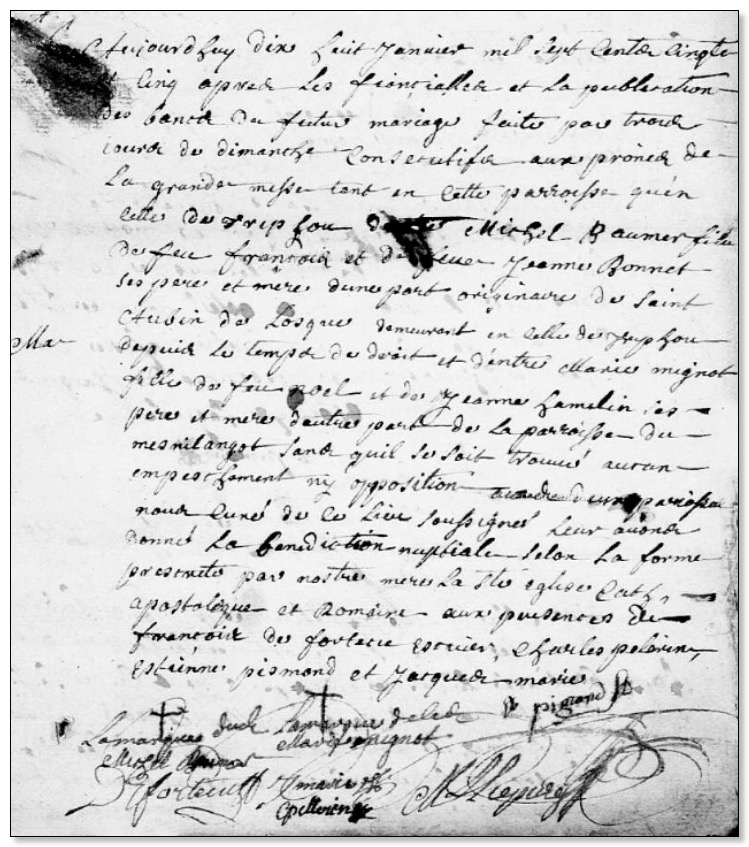 Aujourdhuy dixe huit Janvier mil sept cents cinqte
cinq apres les fiancialles et la publication
des bancs du futur mariage faite par trois
jours de dimanche consecutifs aux prônes de
la grande messe tant en cette parroisse quen
celle de Triphou Michel Baumer fils
de feu francois et de feue Jeanne Bonnet
ses pere et mère dune part originaire de Saint
Aubin de Losque demeurant en celle de Triphou
depuis le temps de droit et dentre Marie mignot
fille de feu noel et de Jeanne hamelin ses
pere et mere dautre part de la parroisse du
mesnilangot sans quil se soit trouvé aucun
empeschement ny opposition
nous curé de ce lieu soussigné leur avons
donné la benediction nuptiale selon la forme
prescrite par nostre mere la Ste église Cath
apostolique et Romaine aux presences de
francois de fortecu escuier, Charles pelerin,
Estienne pismond et Jacques marie
La marque dud La marque de lad pigmond
Michel Marie mignot
fortecu J marie
C pellerin